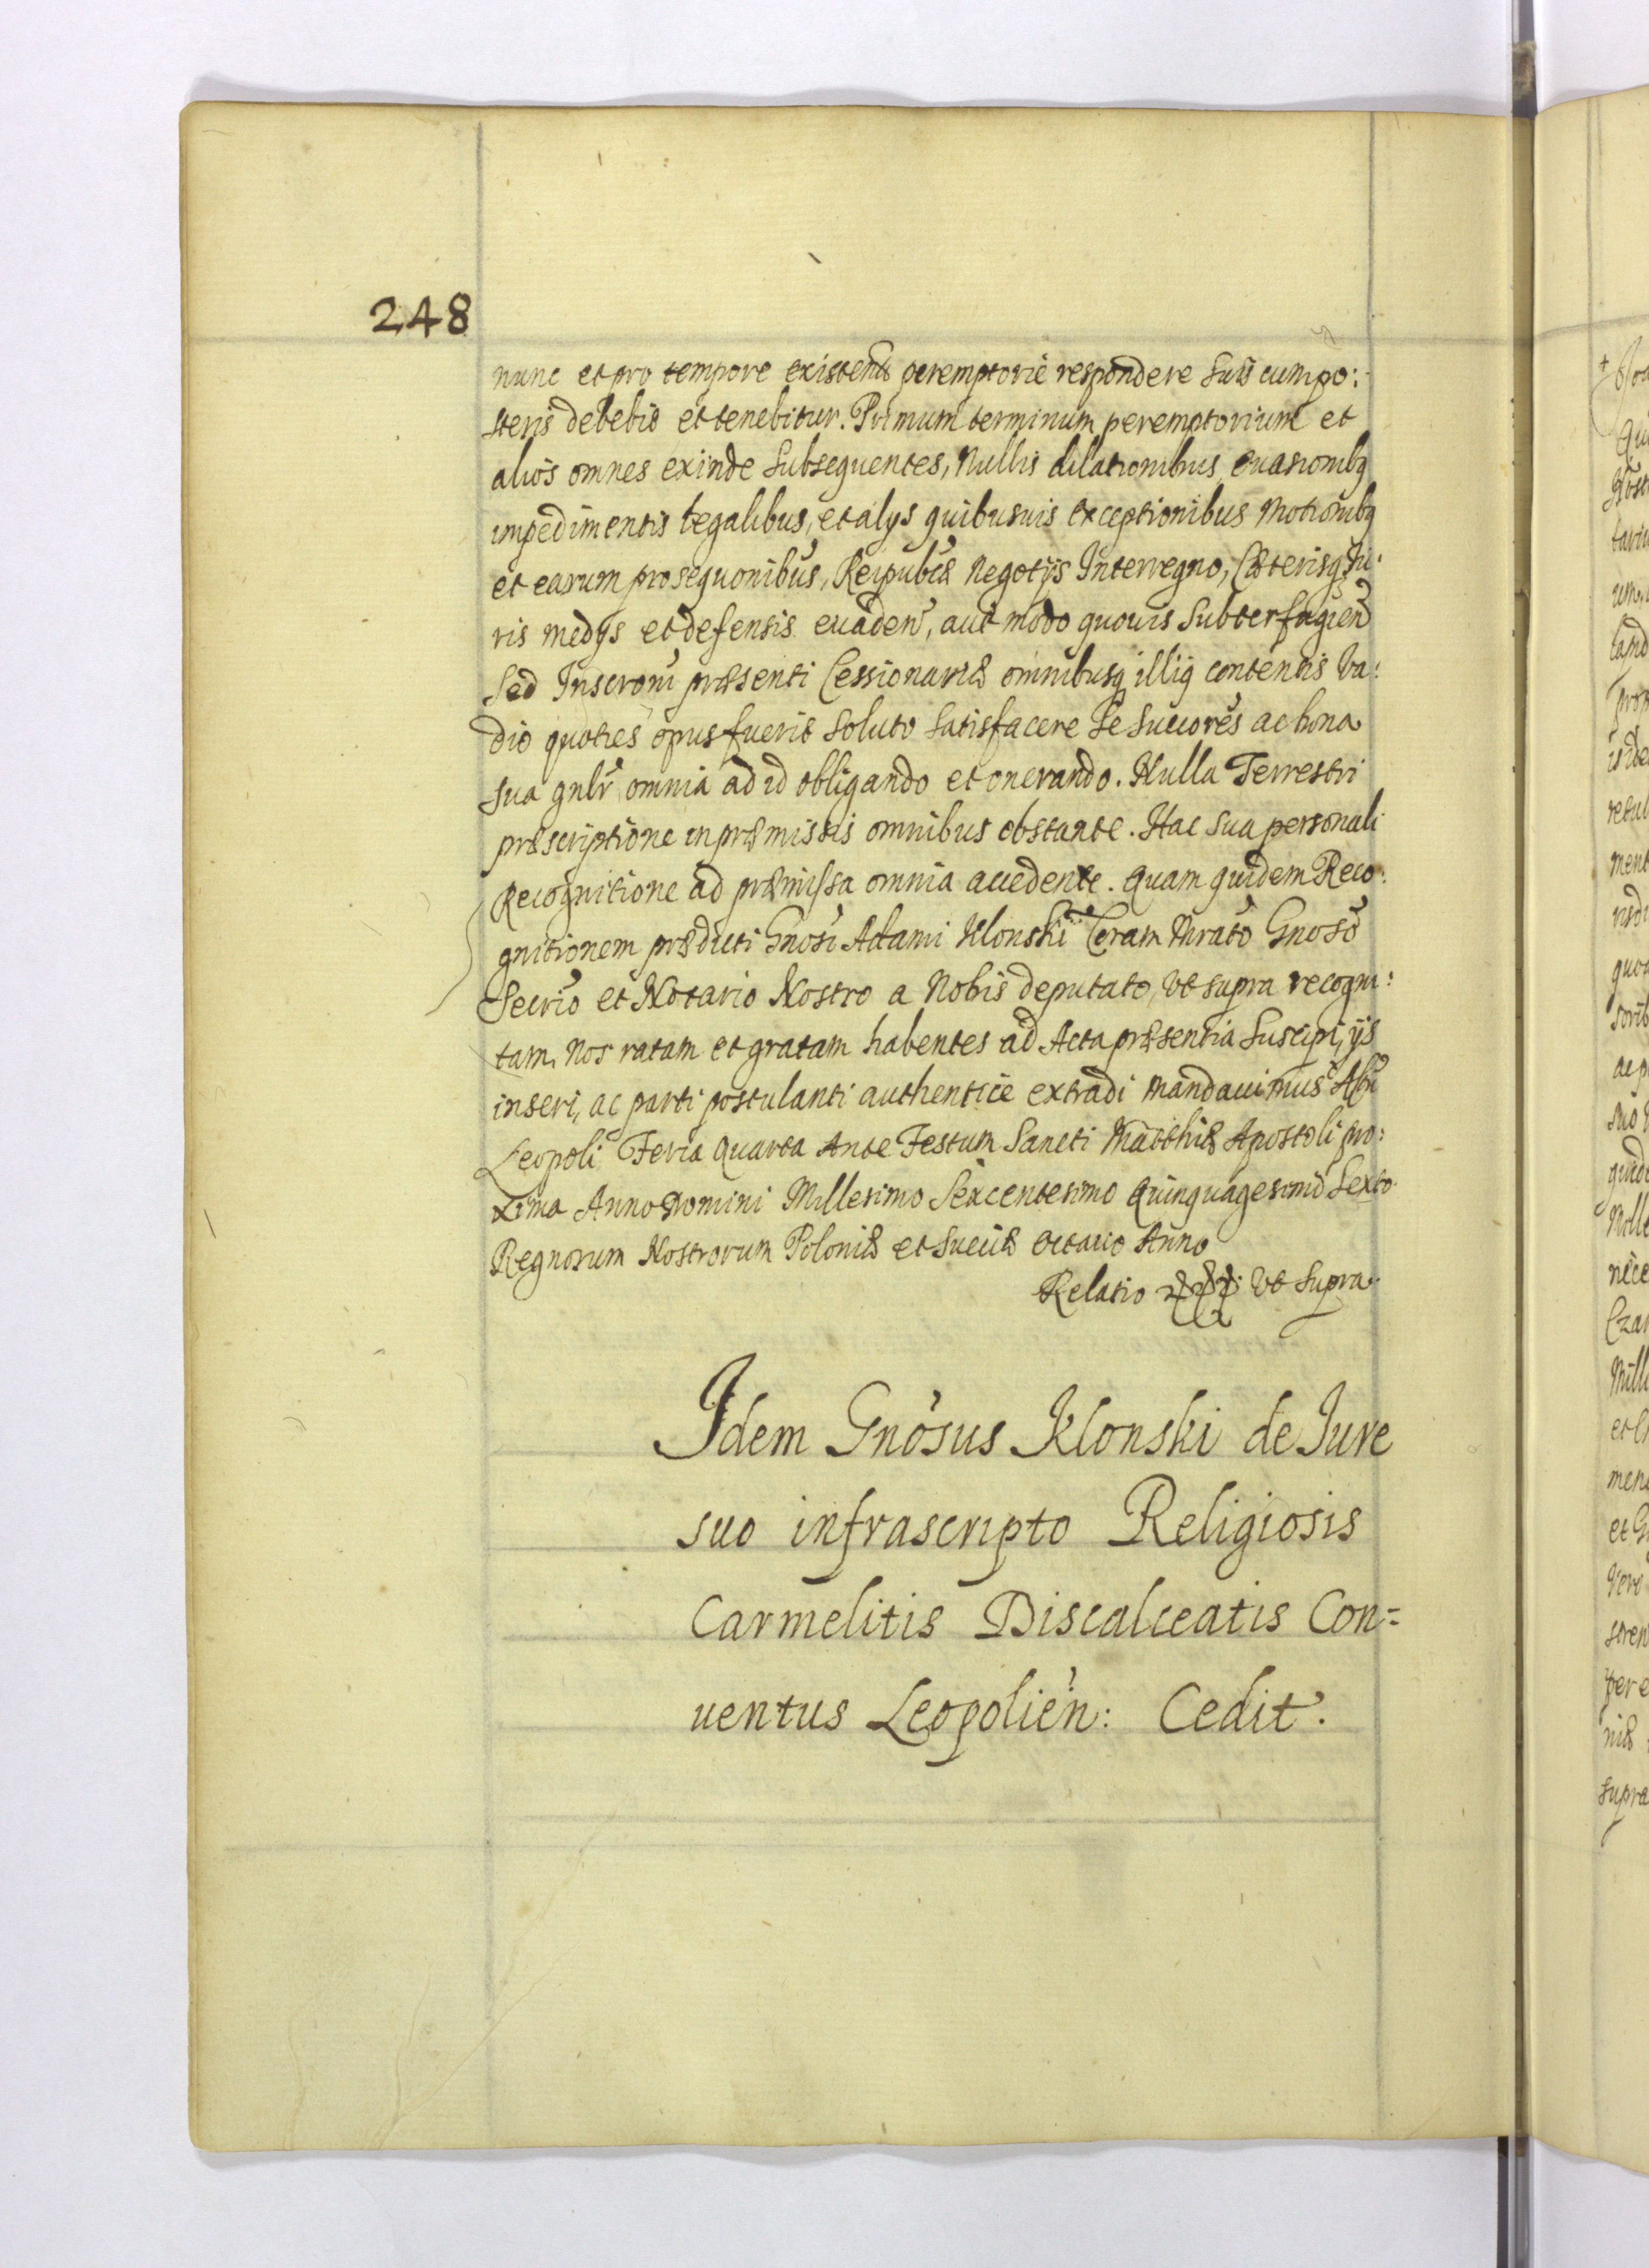 248
nunc et pro tempore existenti peremptorie respondere suis cum po:
steris debebit et tenebitur. Primum terminum peremptorium et
alios omnes exinde subsequentes, Nullis dilationibus euasionibq
impedimentis legalibus, et alys quibusuis exceptionibus Motionibq
et earum prosequonibus, Reipublcæ Negotijs Interregno, Cæterisq Iu:
ris medijs et defensis euaden, aut modo quouis subterfugien
sed Inscroni præsenti Cessionariæ omnibusq illiq contentis Va:
dio quoties opus fuerit soluto satisfacere se succores ac bona
sua gnlr omnia ad id obligando et onerando. Nulla Terrestri
præscriptione in præmissis omnibus obstante. Hac sua personali
Recognitione ad præmissa omnia accedente. Quam quidem Reco:
gnitionem prædicti Gnosi Adami Klonski Coram Mrato Gnoso
Secrio et Notario Nostro a Nobis deputato, vt supra recogni:
tam, Nos ratam et gratam habentes ad Acta præsentia suscipi, ijs
inseri, ac parti postulanti authentice extradi mandauimus
Leopoli Feria Quarta Ante Festum Sancti Matthiæ Apostoli pro:
xima Anno Domini Millesimo Sexcentesimo Quinquagesimo Sexto
Regnorum Nostrorum Poloniæ et Sueciæ octauo Anno
Relatio vt supra.
Idem Gnosus Klonski de Iure
suo infrascripto Religiosis
Carmelitis Discalceatis Con=
uentus Leopolien: Cedit.